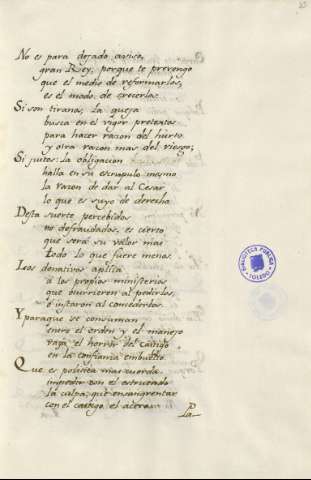 No es para dejado aviso,
gran Rey, porque te prevengo
que el medio de reformarlas,
es el modo de crecerlas.
Si son tiranas, la queja
busca en el vigor pretextos
para hacer razon del hurto
y otra razon mas del riesgo;
Si justas: la obligacion
halla en su escrupulo mesmo
la razon de dar al Cesar
lo que es suyo de derecho
Desta suerte percebidos
no defraudados, es cierto
que será su valor mas
todo lo que fuere menos.
Los donativos aplica
á los propios ministerios
que ocurrieron al pedirlos,
é instaron al concederlos.
Y paraque se consuman
entre el orden y el manejo
el horror del castigo
en la confianza embuelto.
Que es politica mas cuerda
impedir con el estruendo
la culpa; que ensangrentar
con el castigo el acero.
La
BIBLIOTECA PUBLICA
TOLEDO